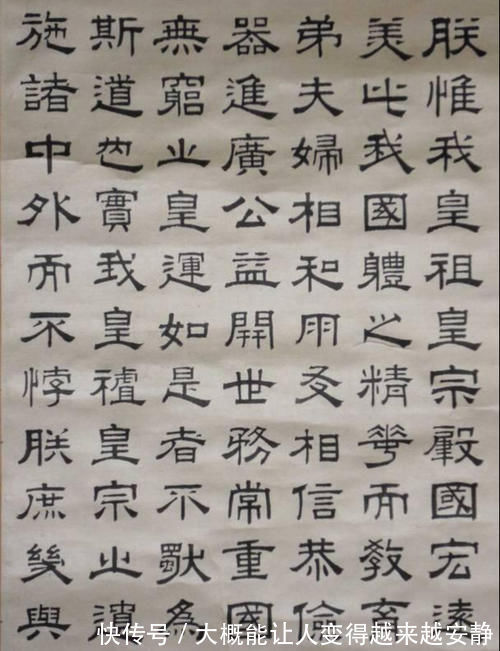 朕惟我皇祖皇宗肇國宏
美此我國體之精華而教育
弟夫婦相和朋友相信恭儉
器進廣公益開世務常重國
無窮之皇運如是者不獨為
斯道也實我皇祖皇宗之遺
施諸中外而不悖朕庶幾與
快传号 / 大概能让人变得越来越安静